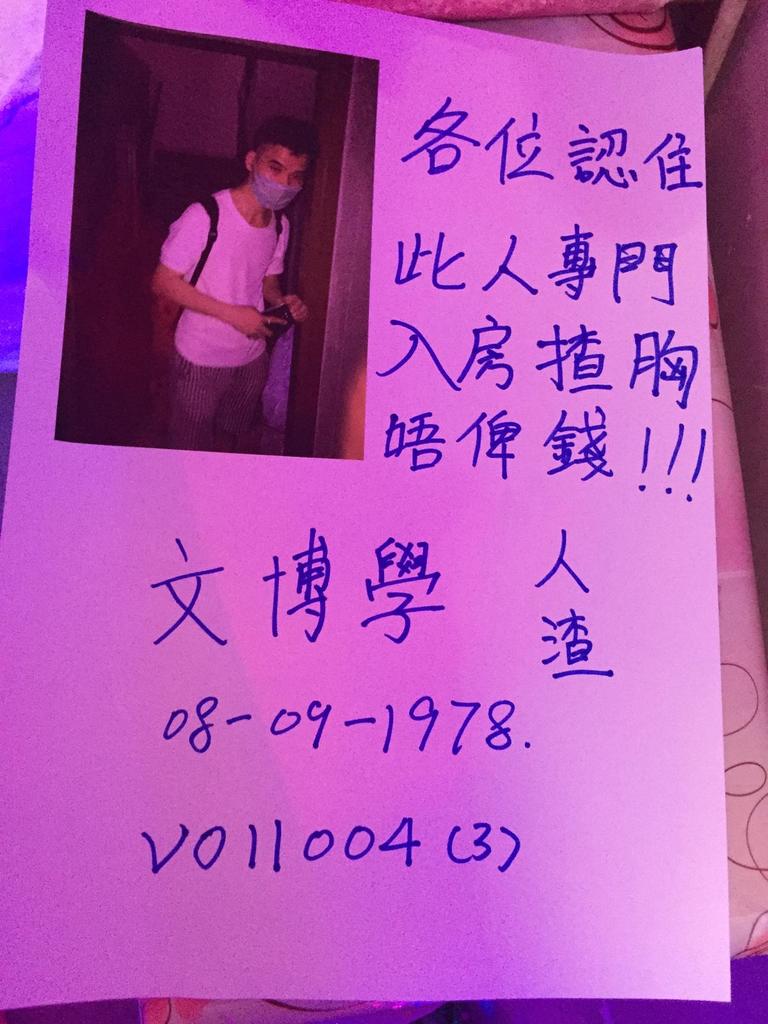 各位認住
此人專門
入房揸胸
唔俾錢!!!
文博學
人渣
08-09-1978.
V011004(3)